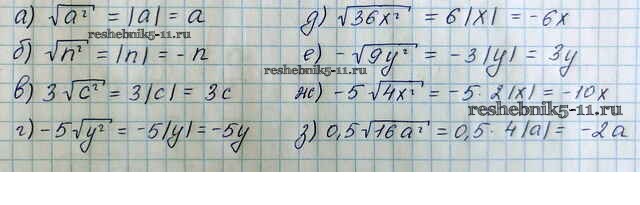 а) √a² = |a| = a
б) √n² = |n| = -n
в) 3√c² = 3|c| = 3c
г) -5√y² = -5|y| = -5y
д) √36x² = 6|x| = -6x
е) -√9y² = -3|y| = 3y
ж) -5√4x² = -5·2|x| = -10x
з) 0,5√16a² = 0,5·4|a| = -2a
reshebnik5-11.ru
reshebnik5-11.ru
reshebnik5-11.ru